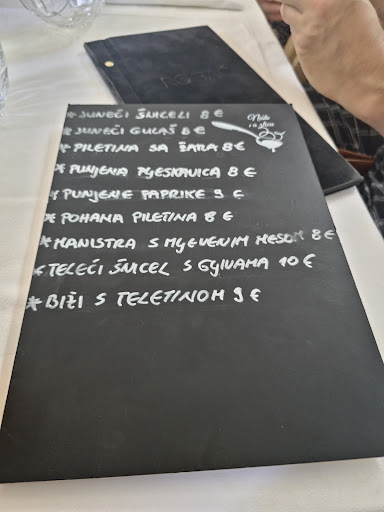 * JUNEĆI ŠNICELI 8 €
* JUNEĆI GULAŠ 8 €
* PILETINA SA ŽARA 8 €
* PUNJENA PLJESKAVICA 8 €
* PUNJENE PAPRIKE 9 €
* POHANA PILETINA 8 €
* MANISTRA S MLJEVENIM MESOM 8 €
* TELEĆI ŠNICEL S GLJIVAMA 10 €
* BIŽI S TELETINOM 9 €